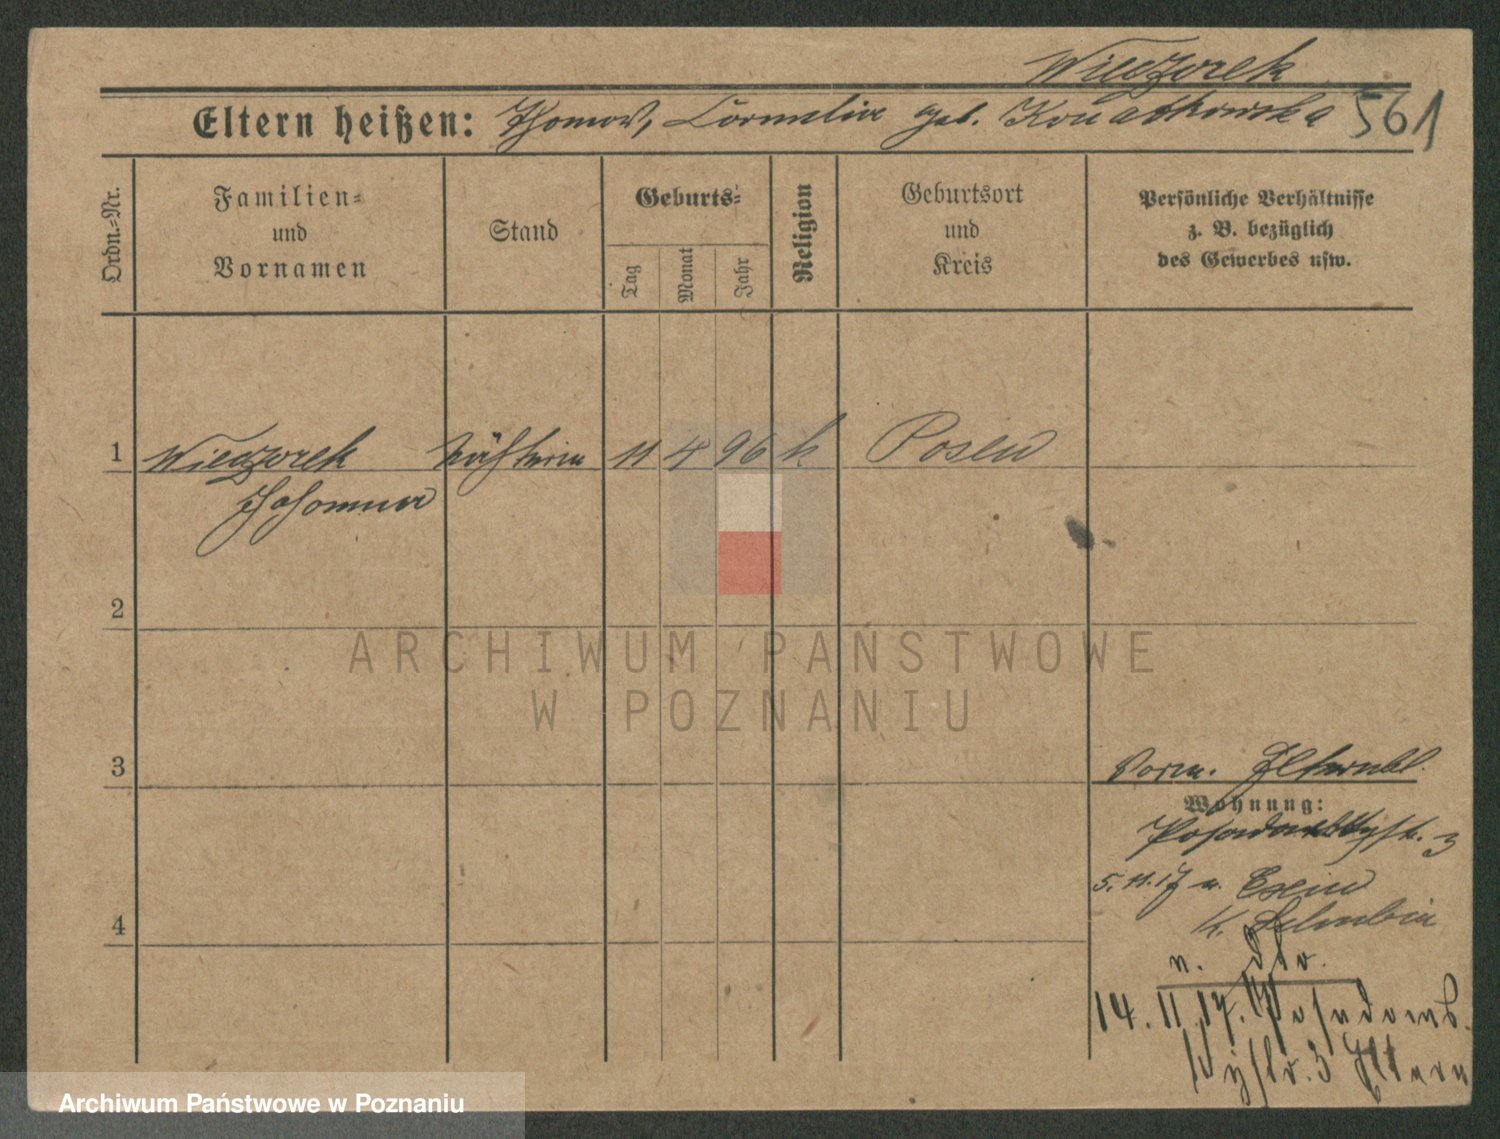 Wieczorek
Eltern heißen: Thomas, Cornelia geb. Konatkowska 561
Ordn.=Nr.
Familien=
und
Vornamen
Stand
Geburts=
Tag
Monat
Jahr
Religion
Geburtsort
und
Kreis
Persönliche Verhältnisse
z. B. bezüglich
des Gewerbes usw.
1 Wieczorek Näherin 11 4 96 k Posen
Johanna
2
ARCHIWUM PAŃSTWOWE
W POZNANIU
3
Wohnung:
3
5.11.17 n. Exin
K. Schubin
4
14.11.17.
3 Eltern
Archiwum Państwowe w Poznaniu